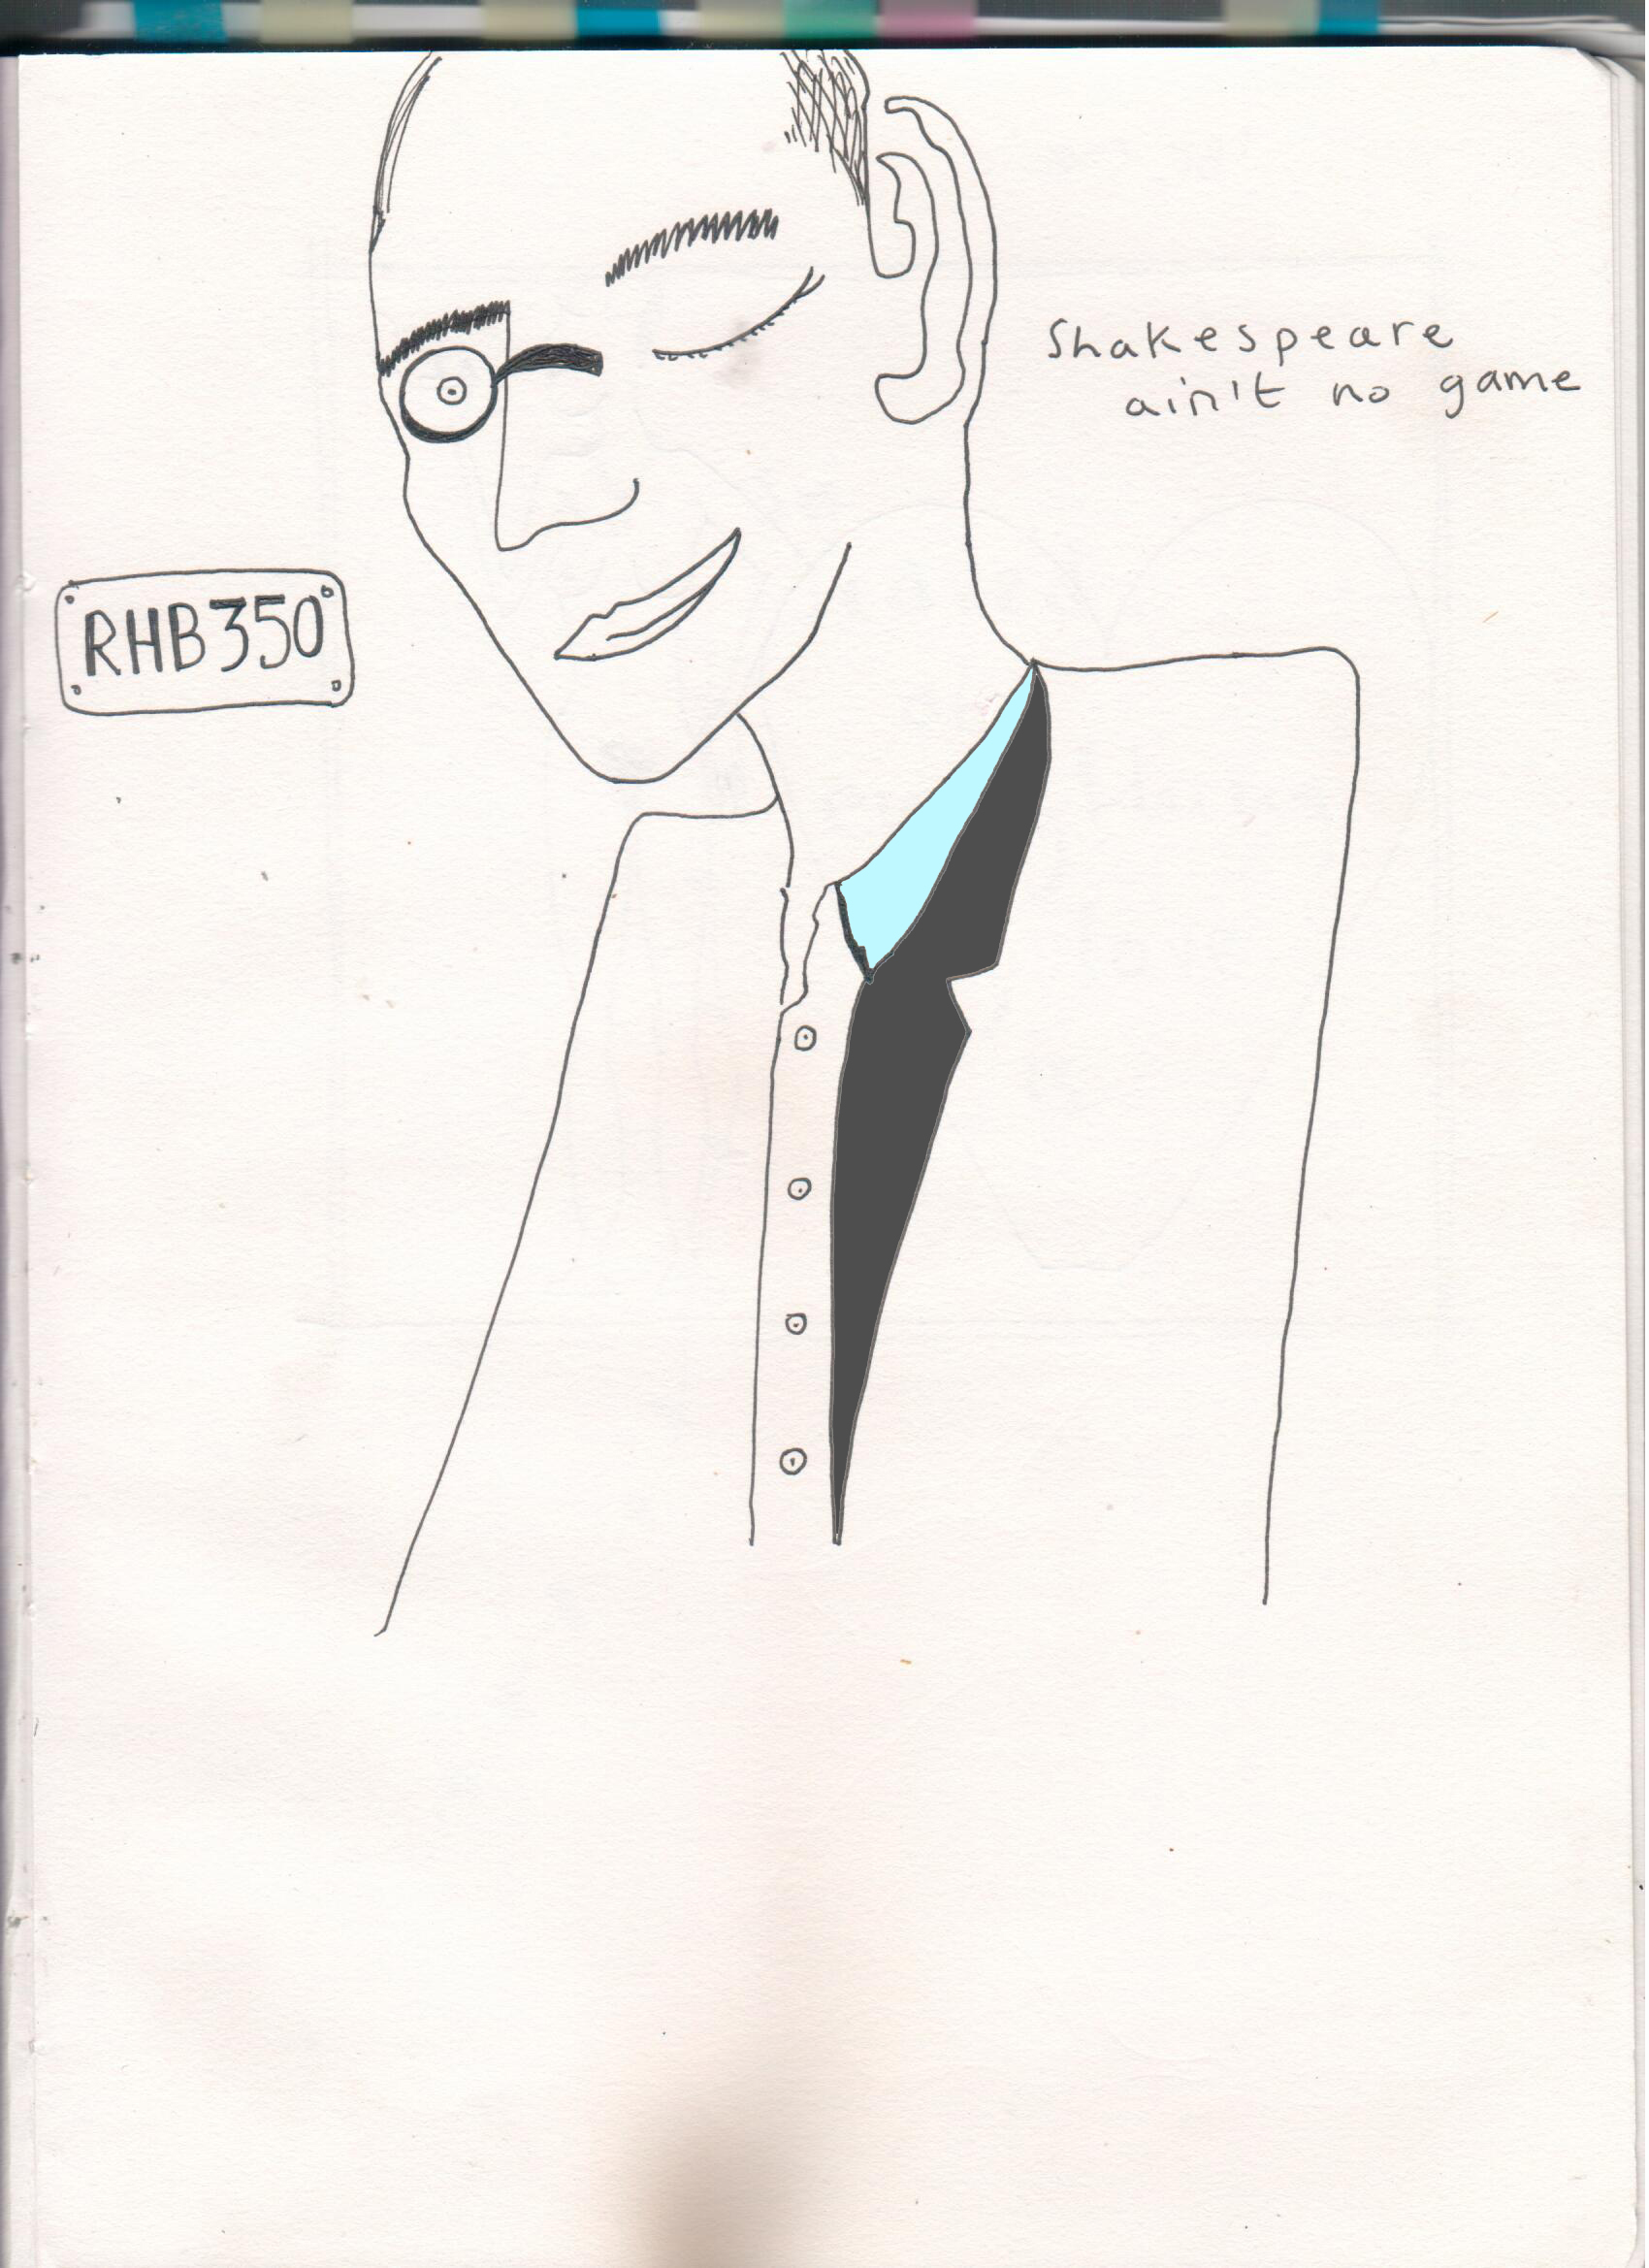 Shakespeare
ain't no game
RHB350